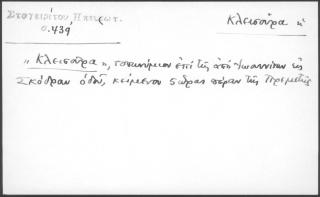 Σταγειρίτου Ηπειρωτ. Κλεισούρα ἡ
σ. 439
„ Κλεισούρα", τοπωνύμιον ἐπὶ τῆς ἀπὸ Ἰωαννίνων εἰς
Σκόδραν ὁδοῦ, κείμενον 5 ὥρας πέραν τῆς Πρεμετῆς